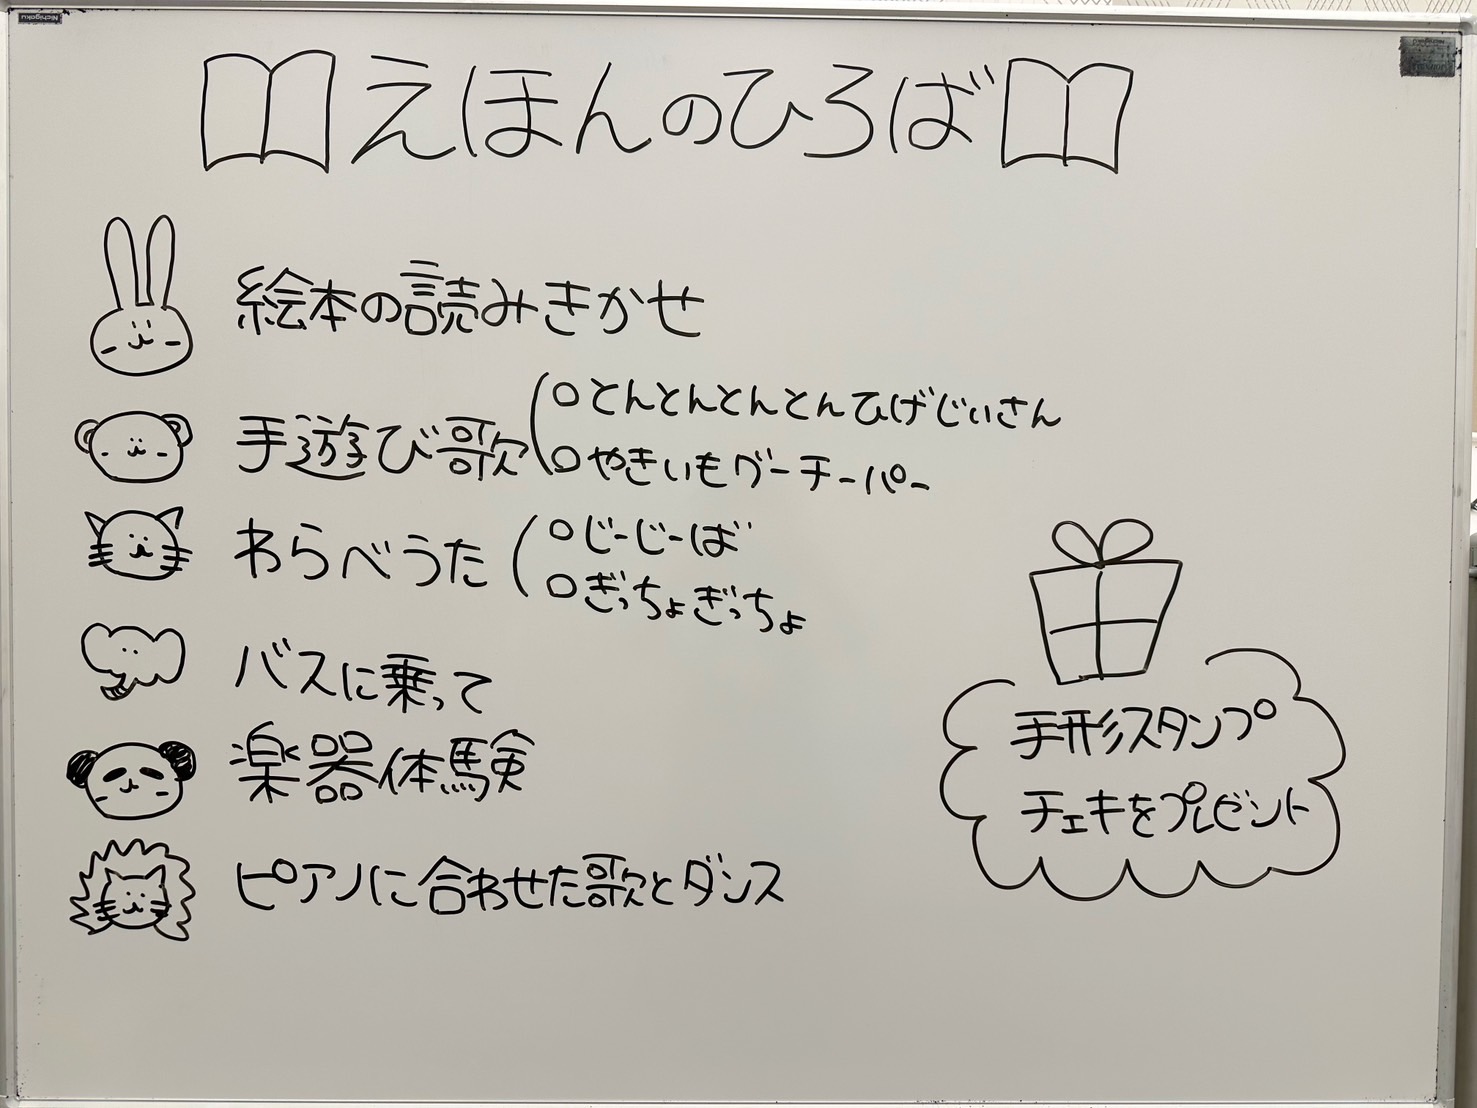 えほんのひろば
絵本の読みきかせ
手遊び歌
○とんとんとんとんひげじいさん
○やきいもグーチーパー
わらべうた
○じーじーば
○ぎっちょぎっちょ
バスに乗って
楽器体験
ピアノに合わせた歌とダンス
手形スタンプ
チェキをプレゼント
Nichigaku